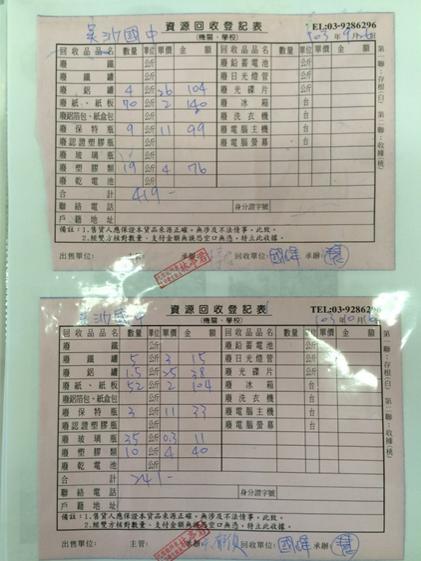 吳沙國中 資源回收登記表 TEL:03-9286296
(機關、學校) 103年9月26日
回收品品名 數量 單位 單價 金額 回收品品名 數量 單位 單價 金額
廢鐵罐 公斤 廢鉛蓄電池
廢鐵 公斤 廢日光燈管
廢鋁罐 4 公斤 26 104 廢光碟片 公斤
廢紙、紙板 70 公斤 2 140 廢冰箱 台
廢鋁箔包、紙盒包 公斤 廢洗衣機 台
廢保特瓶 9 公斤 11 99 廢電腦主機 台
廢認證塑膠瓶 公斤 廢電腦螢幕 台
廢玻璃瓶 公斤
廢塑膠類 19 公斤 4 76
廢乾電池 公斤
合計 419-
聯絡電話 身分證字號
戶籍地址
備註:1.售貨人應保證本貨品來源正確,無涉及不法情事,此致。
2.經雙方核對數量、支付金額無誤恐空口無憑,特立此收據。
出售單位: 承辦: 回收單位: 國偉 承辦:
第一聯:存根(白) 第二聯:收據(桃)
吳沙國中 資源回收登記表 TEL:03-9286296
(機關、學校) 103年10月16日
回收品品名 數量 單位 單價 金額 回收品品名 數量 單位 單價 金額
廢鐵罐 5 公斤 3 15 廢鉛蓄電池 公斤
廢鋁罐 1.5 公斤 25 38 廢日光燈管 公斤
廢紙、紙板 52 公斤 2 104 廢光碟片 公斤
廢鋁箔包、紙盒包 公斤 廢冰箱 台
廢保特瓶 3 公斤 11 33 廢洗衣機 台
廢認證塑膠瓶 公斤 廢電腦主機 台
廢玻璃瓶 35 公斤 0.3 11 廢電腦螢幕 台
廢塑膠類 10 公斤 4 40
廢乾電池 公斤
合計 241-
聯絡電話 身分證字號
戶籍地址
備註:1.售貨人應保證本貨品來源正確,無涉及不法情事,此致。
2.經雙方核對數量、支付金額無誤恐空口無憑,特立此收據。
出售單位: 主管: 承辦: 回收單位: 國偉 承辦:
第一聯:存根(白) 第二聯:收據(桃)